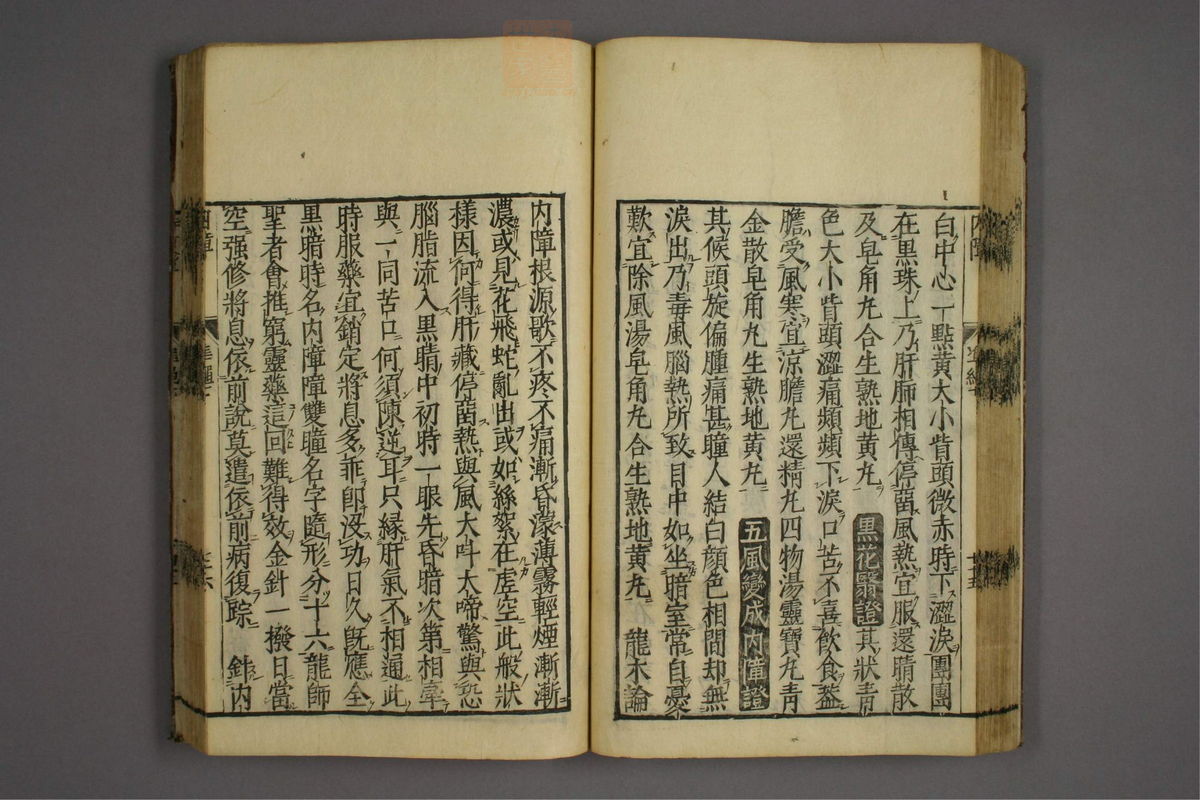 白中心一點黃大小眥頭微赤時下澀淚團團
在黒珠上乃肝肺相傳停蓄風熱宜服還睛散
及皂角丸合生熟地黃丸 黒花翳證其狀青
色大小眥頭澀痛頻頻下淚口苦不喜飲食葢
膽受風寒宜涼膽丸還精丸四物湯靈寶丸青
金散皂角丸生熟地黃丸 五風變成內障證
其候頭旋偏腫痛甚瞳人結白顏色相間却無
淚出乃毒風腦熱所致目中如坐暗室常自憂
歎宜除風湯皂角丸合生熟地黃丸 龍木論
內障根源歌不疼不痛漸昏濛薄霧輕煙漸漸
濃或見花飛蛇亂出或如絲絮在虛空此般狀
樣因何得肝藏停蓄熱與風大叫大啼驚與恐
腦脂流入黒睛中初時一眼先昏暗次第相牽
與一同苦口何須陳逆耳只緣肝氣不相通此
時服藥宜銷定將息多乖卽沒功日久旣應全
黒暗時名內障障雙瞳名字隨形分十六龍師
聖者會推窮靈藥這回難得效金針一撥日當
空强修將息依前說莫遣依前病復踪 針內